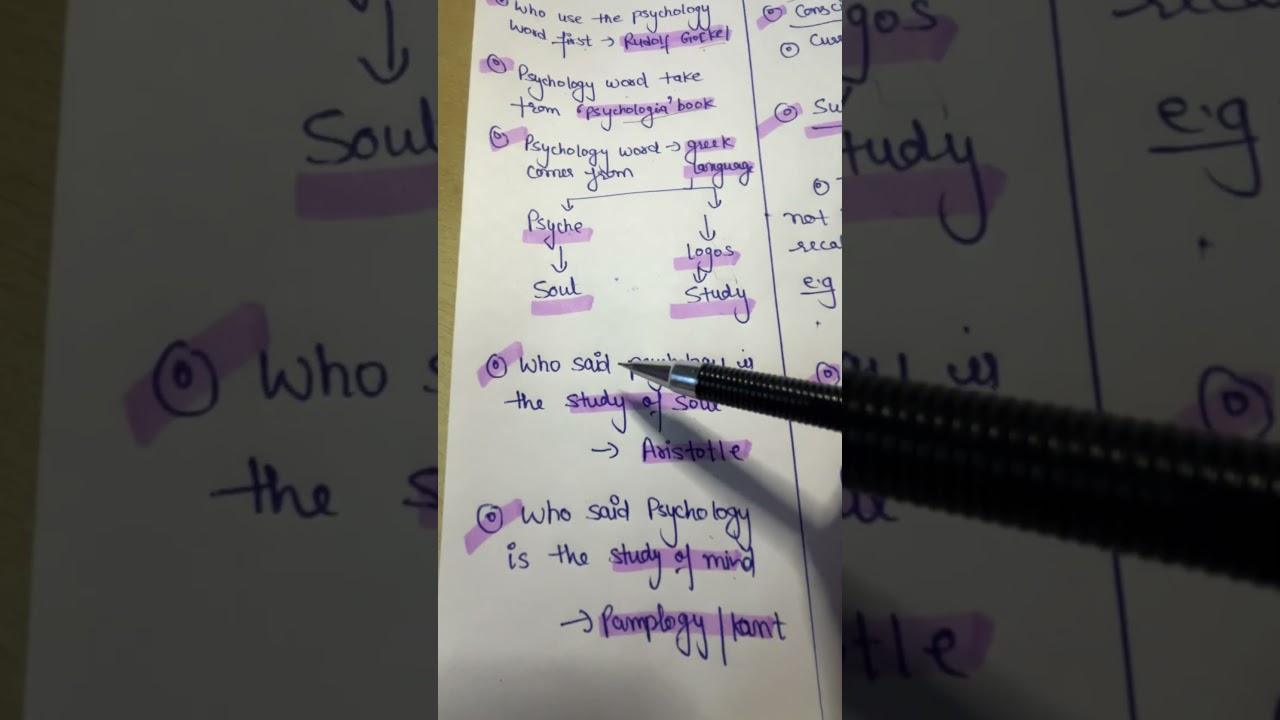 Who use the psychology
word first → Rudolf Gockel
Psychology word take
from 'psychologia' book
Psychology word → greek
comes from language
Psyche
Logos
Soul
Study
Who said psychology is
the study of soul
→ Aristotle
Who said Psychology
is the study of mind
→ Pamplogy / kant
Consci
Cur
Su
not
reca
e.g